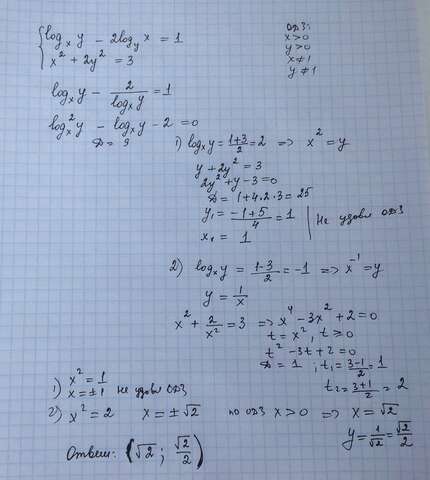 { log_x y - 2log_y x = 1
x² + 2y² = 3
ОДЗ:
x>0
y>0
x≠1
y≠1
log_x y - 2/log_x y = 1
log_x² y - log_x y - 2 = 0
D = 9
1) log_x y = (1+3)/2 = 2 => x² = y
y + 2y² = 3
2y² + y - 3 = 0
D = 1+4·2·3 = 25
y₁ = (-1+5)/4 = 1
x₁ = 1
Не удовл ОДЗ
2) log_x y = (1-3)/2 = -1 => x⁻¹ = y
y = 1/x
x² + 2/x² = 3 => x⁴ - 3x² + 2 = 0
t = x², t ≥ 0
t² - 3t + 2 = 0
D = 1 ; t₁ = (3-1)/2 = 1
t₂ = (3+1)/2 = 2
1) x² = 1
x = ±1 не удовл ОДЗ
2) x² = 2 x = ±√2 по ОДЗ x > 0 => x = √2
y = 1/√2 = √2/2
Ответ: (√2 ; √2/2)